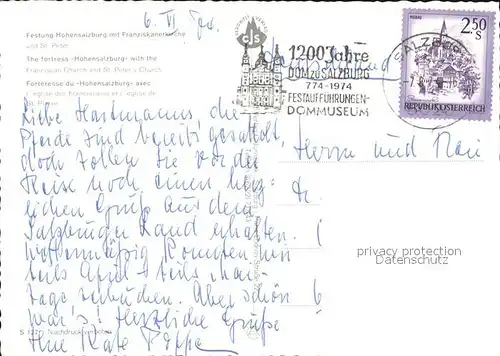 6. VI
Festung Hohensalzburg mit Franziskanerkirche
und St. Peter
The fortress »Hohensalzburg« with the
Franciscan Church and St. Peter's Church
Forteresse du »Hohensalzburg« avec
l'église des Franciscains et l'église de
St. Pierre
1200 Jahre
DOM zu SALZBURG
774-1974
FESTAUFFÜHRUNGEN-
DOMMUSEUM
SALZBURG
2.50
S
REPUBLIK ÖSTERREICH
Liebe Hartmanns die
Pferde sind bereits gesattelt,
doch sollen Sie vor der
Reise noch einen herz-
lichen Gruß aus dem
Salzburger Land erhalten.
Wettermäßig konnten wir
teils April teils Mai
tage verbuchen. Aber schön
war's! Herzliche Grüße
Ihre Käte
Herrn und Frau
Dr.
privacy protection
Datenschutz
Nachdruck verboten